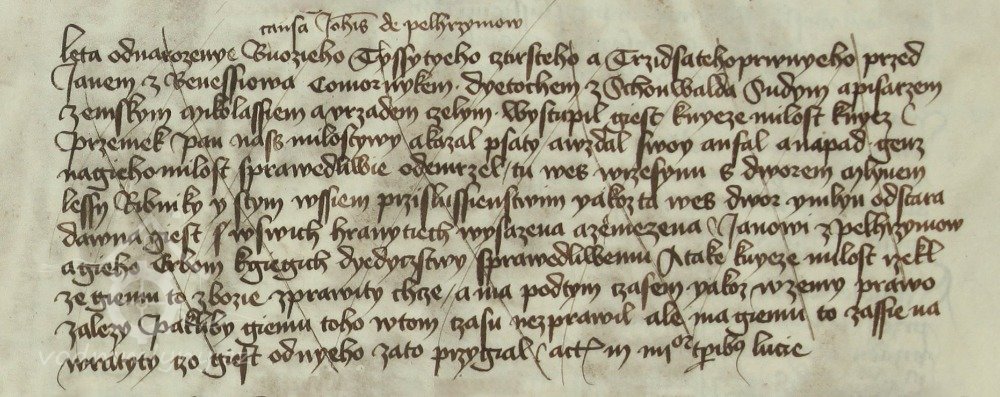 causa Joh̅is de pelhrzymow
leta odnarozenye Buozieho Tyssytyeho cztrsteho a Trzidsatehoprwnyeho przed
Janem z Benessiowa Comornykem dyetochem z Schonwalda Sudym apisarzem
zemskym mikolassiem a vrzadem czelym Wystupil giest knyeze milost knyez
Przemek Pan nass milostywy akazal psaty awzdal swoy anfal anapad genz
nagieho milost sprawedliwie odemrzel tu wes wrzesynu s dworem mlynem
lessy Ribniky y stym wssiem przislussienstwim yakoz ta wes dwor ymlyn odstara
dawna giest wswich hranytiech wysazena azemezena Janowi z pelhrzymow
agieho Erbom kgiegich dyedyczstwy sprawedliwemu Atake knyeze milost rzekl
ze giemu to zbozie zprawity chze ama podtym czasem yakoz wzemy prawo
zalezy Pakliby giemu toho wtom czasu nezprawil ale ma giemu to zassie na
wratyty czo giest odnyeho zato przygial act̅ in iiiior tp̅ribus lucie